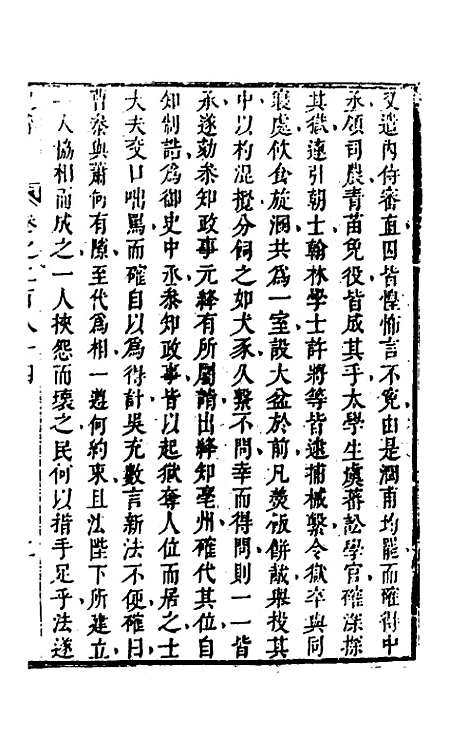 又遣內侍審直囚皆惶怖言不寃由是潤甫均罷而確得中
丞領司農青苗免役皆成其手太學生虞蕃訟學官確深探
其獄連引朝士翰林學士許將等皆逮捕械繫令獄卒與同
寢處飲食旋溷共為一室設大盆於前凡羹飯餅胾舉投其
中以杓混攪分飼之如犬豕久繫不問幸而得問則一一皆
承遂劾叅知政事元絳有所屬請出絳知亳州確代其位自
知制誥為御史中丞叅知政事皆以起獄奪人位而居之士
大夫交口咄罵而確自以為得計吳充數言新法不便確曰
曹叅與蕭何有隙至代為相一遵何約束且法陛下所建立
一人協相而成之一人挾怨而壞之民何以措手足乎法遂
卷之二百八十四